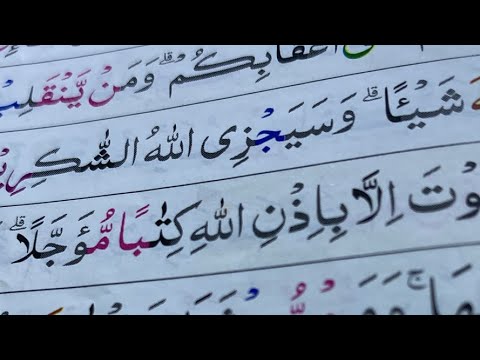 اَعْقَابِكُمْ ؕ وَمَنْ يَّنْقَلِبْ
شَيْـًٔا ؕ وَسَيَجْزِى اللّٰهُ الشّٰكِرِيْ
وْتَ اِلَّا بِاِذْنِ اللّٰهِ كِتٰبًا مُّؤَجَّلًا ؕ
هَا ۚ وَمَنْ